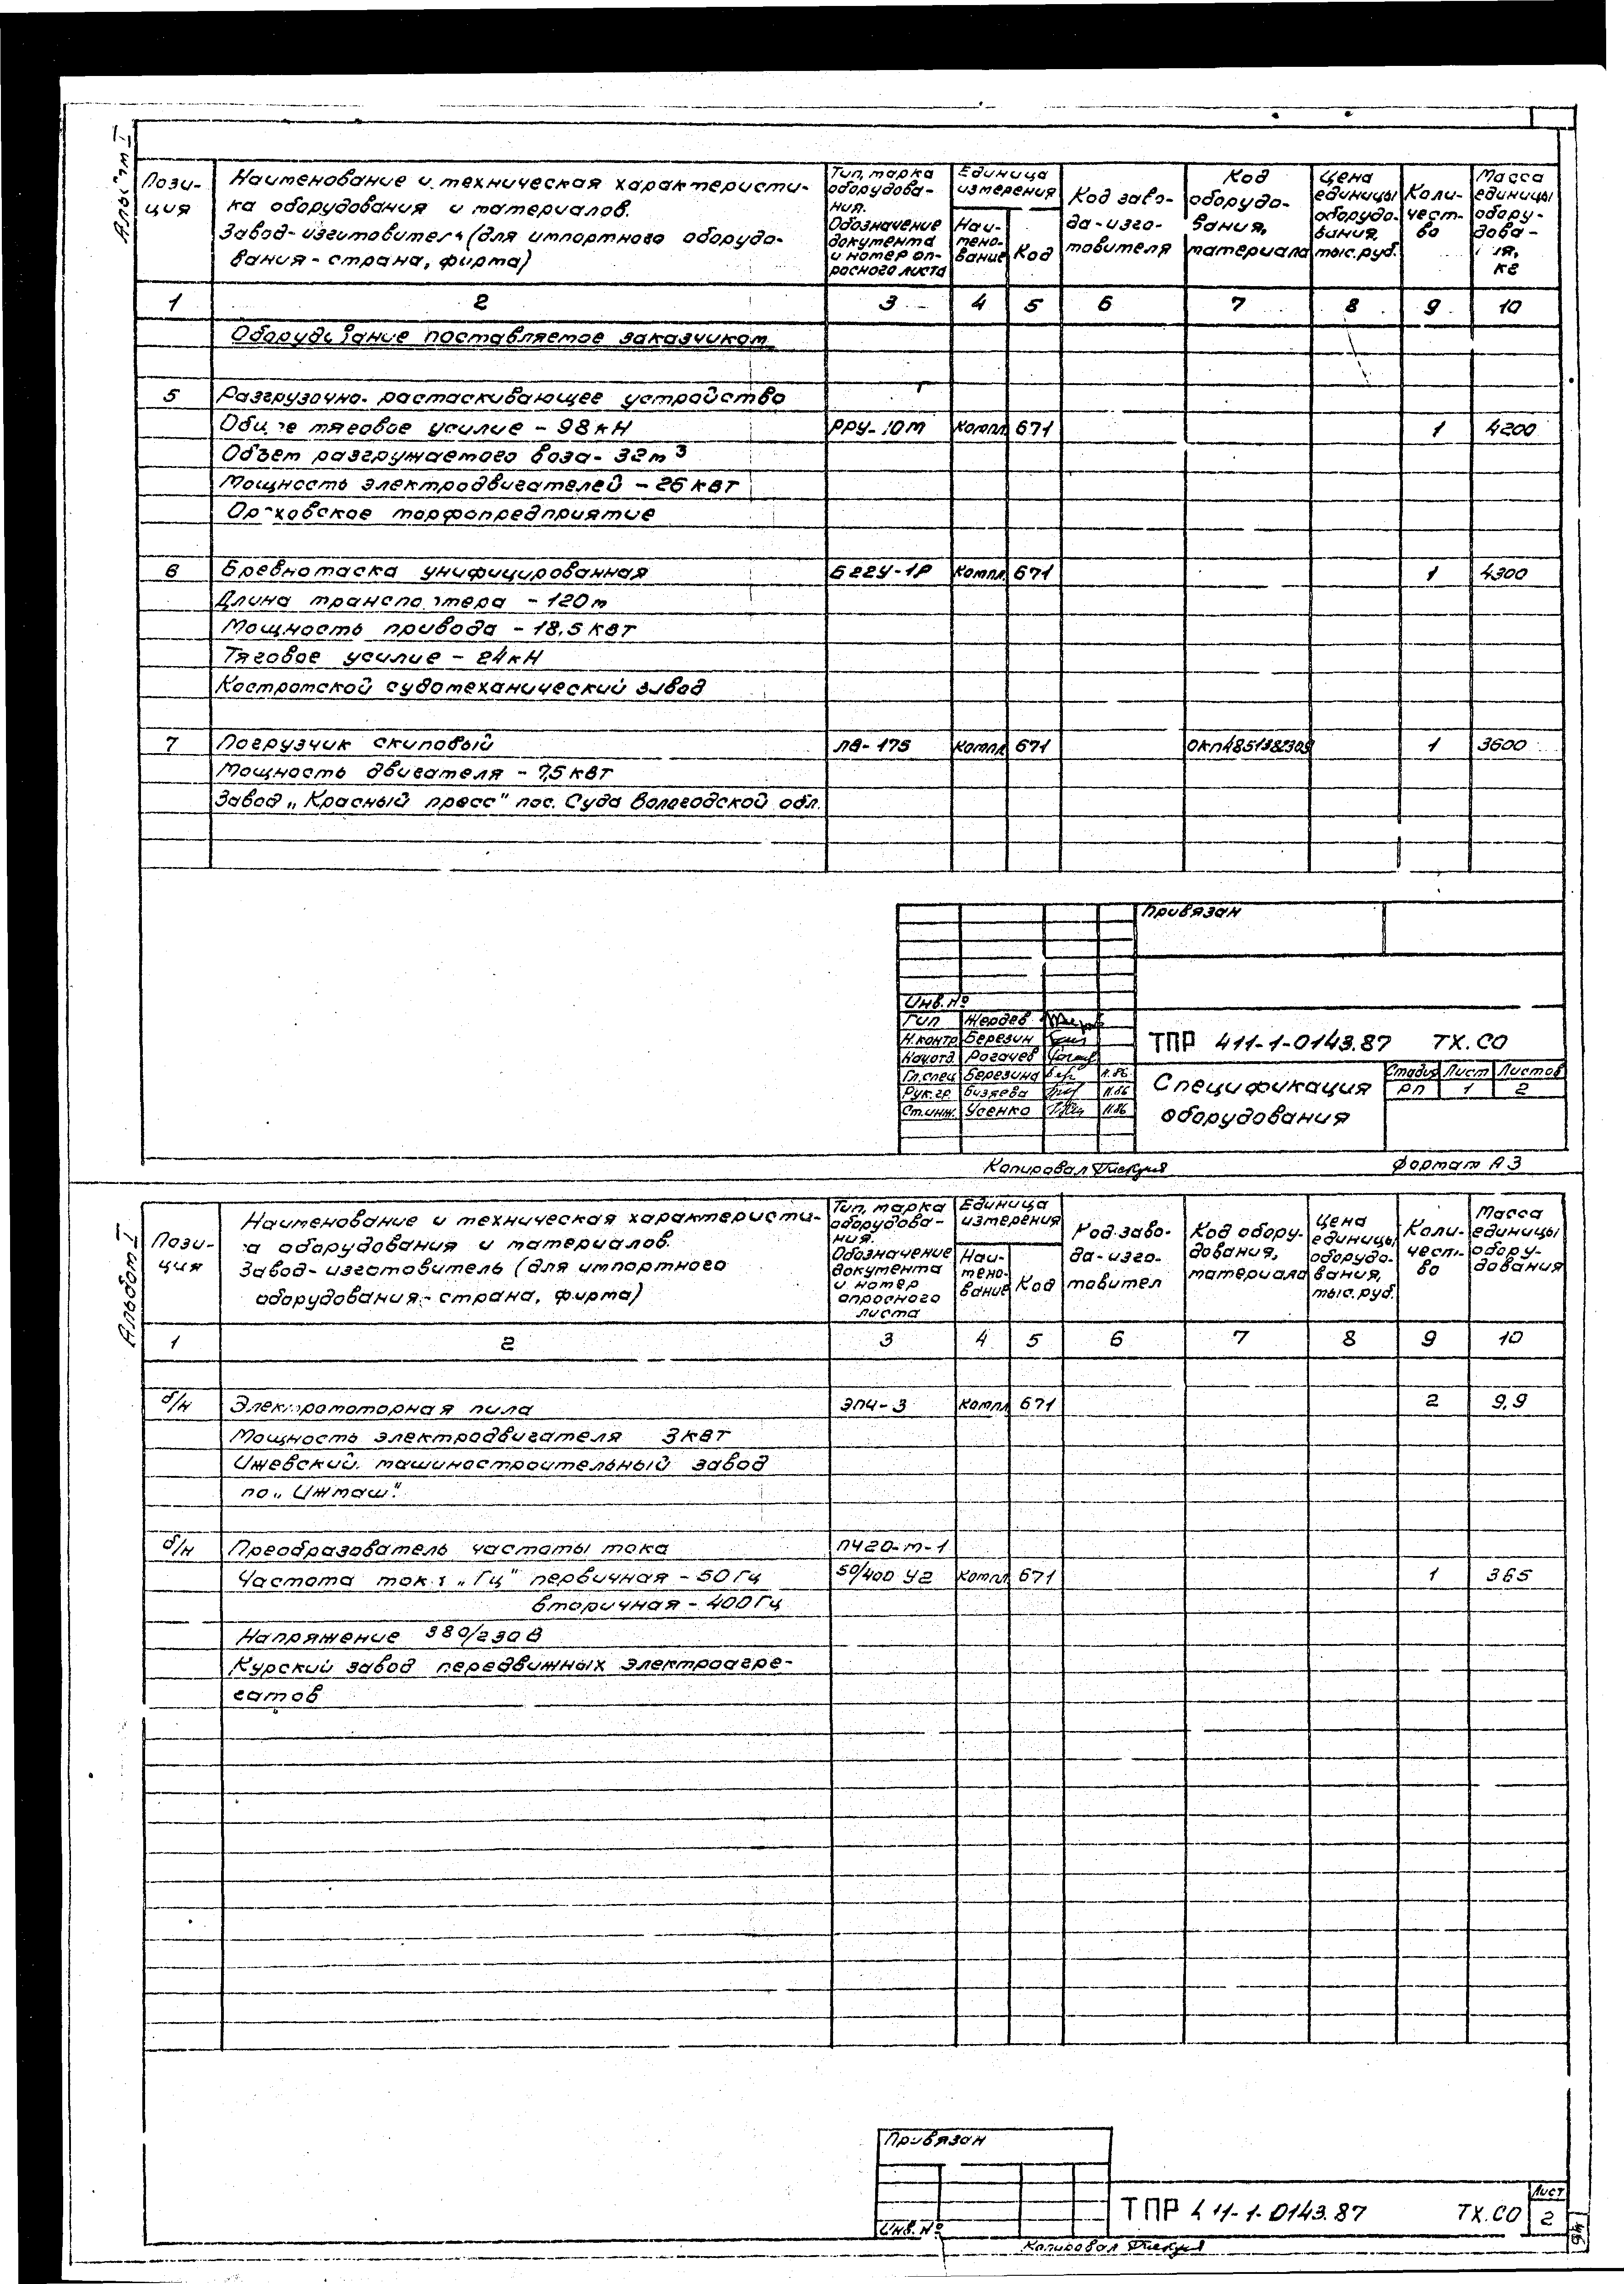 Альбом I
Пози-
ция
Наименование и техническая характеристи-
ка оборудования и материалов.
Завод-изготовитель (для импортного оборудо-
вания - страна, фирма)
Тип, марка
оборудова-
ния.
Обозначение
документа
и номер оп-
росного листа
Единица
измерения
Наи-
мено-
вание
Код
Код заво-
да-изго-
товителя
Код
оборудо-
вания,
материала
Цена
единицы
оборудо-
вания,
тыс.руб.
Коли-
чест-
во
Масса
единицы
обору-
дова-
ия,
кг
1 2 3 4 5 6 7 8 9 10
Оборудование поставляемое заказчиком
5 Разгрузочно-растаскивающее устройство
Общее тяговое усилие - 98 кН РРУ-10М компл 671 1 4200
Объем разгружаемого воза - 32 м³
Мощность электродвигателей - 26 квт
Ореховское торфопредприятие
6 Бревнотаска унифицированная Б22У-1Р компл 671 1 4300
Длина транспортера - 120 м
Мощность привода - 18,5 квт
Тяговое усилие - 24 кН
Костромской судомеханический завод
7 Погрузчик скиповый ЛВ-175 компл 671 ОКП4851382309 1 3600
Мощность двигателя - 7,5 квт
Завод „Красный пресс" пос. Суда Вологодской обл.
Привязан
Инв. №
ГИП Жердев
Н.контр Березин
Нач.отд Рогачев
Гл.спец Березина 11.86
Рук.гр. Бизяева 11.86
Ст.инж. Усенко 11.86
ТПР 411-1-0143.87 ТХ.СО
Спецификация
оборудования
Стадия Лист Листов
РП 1 2
Копировал
Формат А3
Альбом I
Пози-
ция
Наименование и техническая характеристи-
а оборудования и материалов.
Завод-изготовитель (для импортного
оборудования - страна, фирма)
Тип, марка
оборудова-
ния.
Обозначение
документа
и номер
опросного
листа
Единица
измерения
Наи-
мено-
вание
Код
Код заво-
да-изго-
товител
Код обору-
дования,
материала
Цена
единицы
оборудо-
вания,
тыс.руб.
Коли-
чест-
во
Масса
единицы
обору-
дования
1 2 3 4 5 6 7 8 9 10
б/н Электромоторная пила ЭПЧ-3 компл 671 2 9,9
Мощность электродвигателя 3 квт
Ижевский машиностроительный завод
по „Ижмаш"
б/н Преобразователь частоты тока ПЧ20-М-1
Частота тока „Гц" первичная - 50 Гц 50/400 У2 компл 671 1 365
вторичная - 400 Гц
Напряжение 380/230 В
Курский завод передвижных электроагре-
гатов
Привязан
Инв. №
ТПР 411-1-0143.87 ТХ.СО
Лист
2
Копировал
46